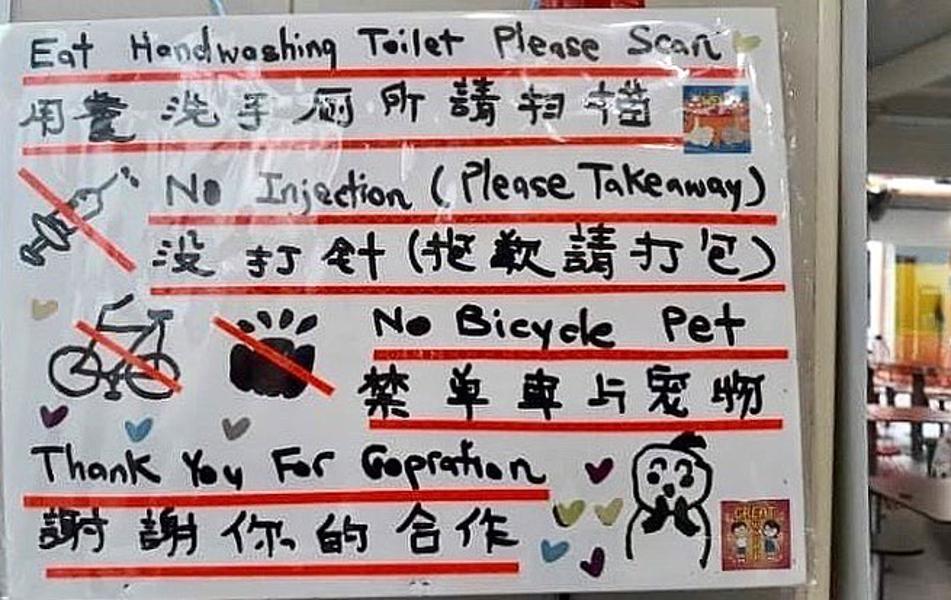 Eat Handwashing Toilet Please Scan
用餐 洗手 厕所 請 扫描
No Injection (Please Takeaway)
没打針(抱歉請打包)
No Bicycle Pet
禁单車与宠物
Thank You For Copration
謝謝你的合作
GREAT